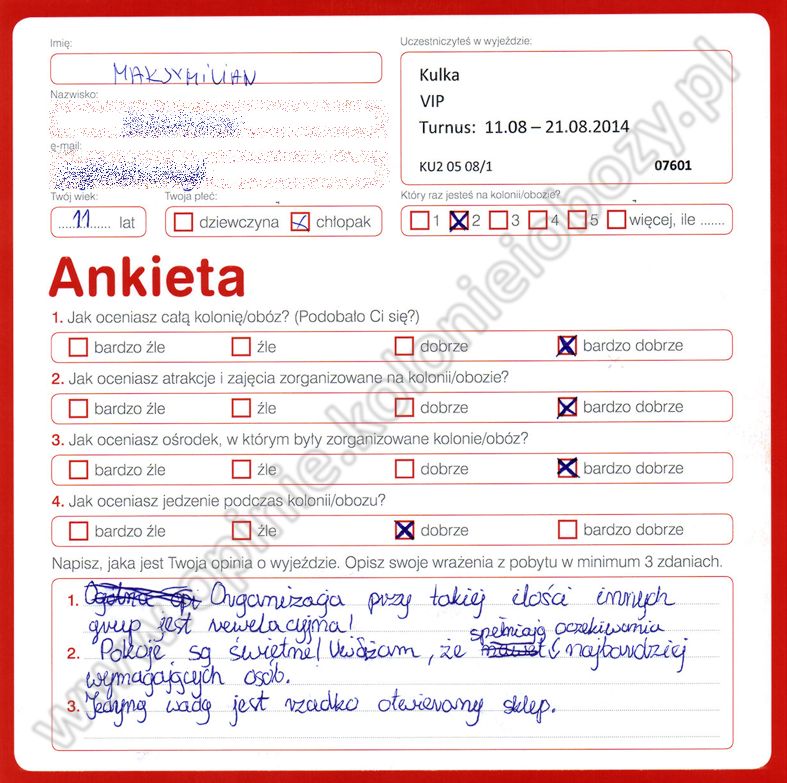 Imię:
MAKSYMILIAN
Nazwisko:
e-mail:
Uczestniczyłeś w wyjeździe:
Kulka
VIP
Turnus: 11.08 – 21.08.2014
KU2 05 08/1 07601
Twój wiek:
.....11...... lat
Twoja płeć:
dziewczyna chłopak
Który raz jesteś na kolonii/obozie?
1 2 3 4 5 więcej, ile .......
Ankieta
1. Jak oceniasz całą kolonię/obóz? (Podobało Ci się?)
bardzo źle źle dobrze bardzo dobrze
2. Jak oceniasz atrakcje i zajęcia zorganizowane na kolonii/obozie?
bardzo źle źle dobrze bardzo dobrze
3. Jak oceniasz ośrodek, w którym były zorganizowane kolonie/obóz?
bardzo źle źle dobrze bardzo dobrze
4. Jak oceniasz jedzenie podczas kolonii/obozu?
bardzo źle źle dobrze bardzo dobrze
Napisz, jaka jest Twoja opinia o wyjeździe. Opisz swoje wrażenia z pobytu w minimum 3 zdaniach.
1. Organizacja przy takiej ilości innych
grup jest rewelacyjna!
spełniają oczekiwania
2. Pokoje są świetne! Uważam, że najbardziej
wymagających osób.
3. Jedyną wadą jest rzadko otwierany sklep.
www.opinie.kolonieiobozy.pl